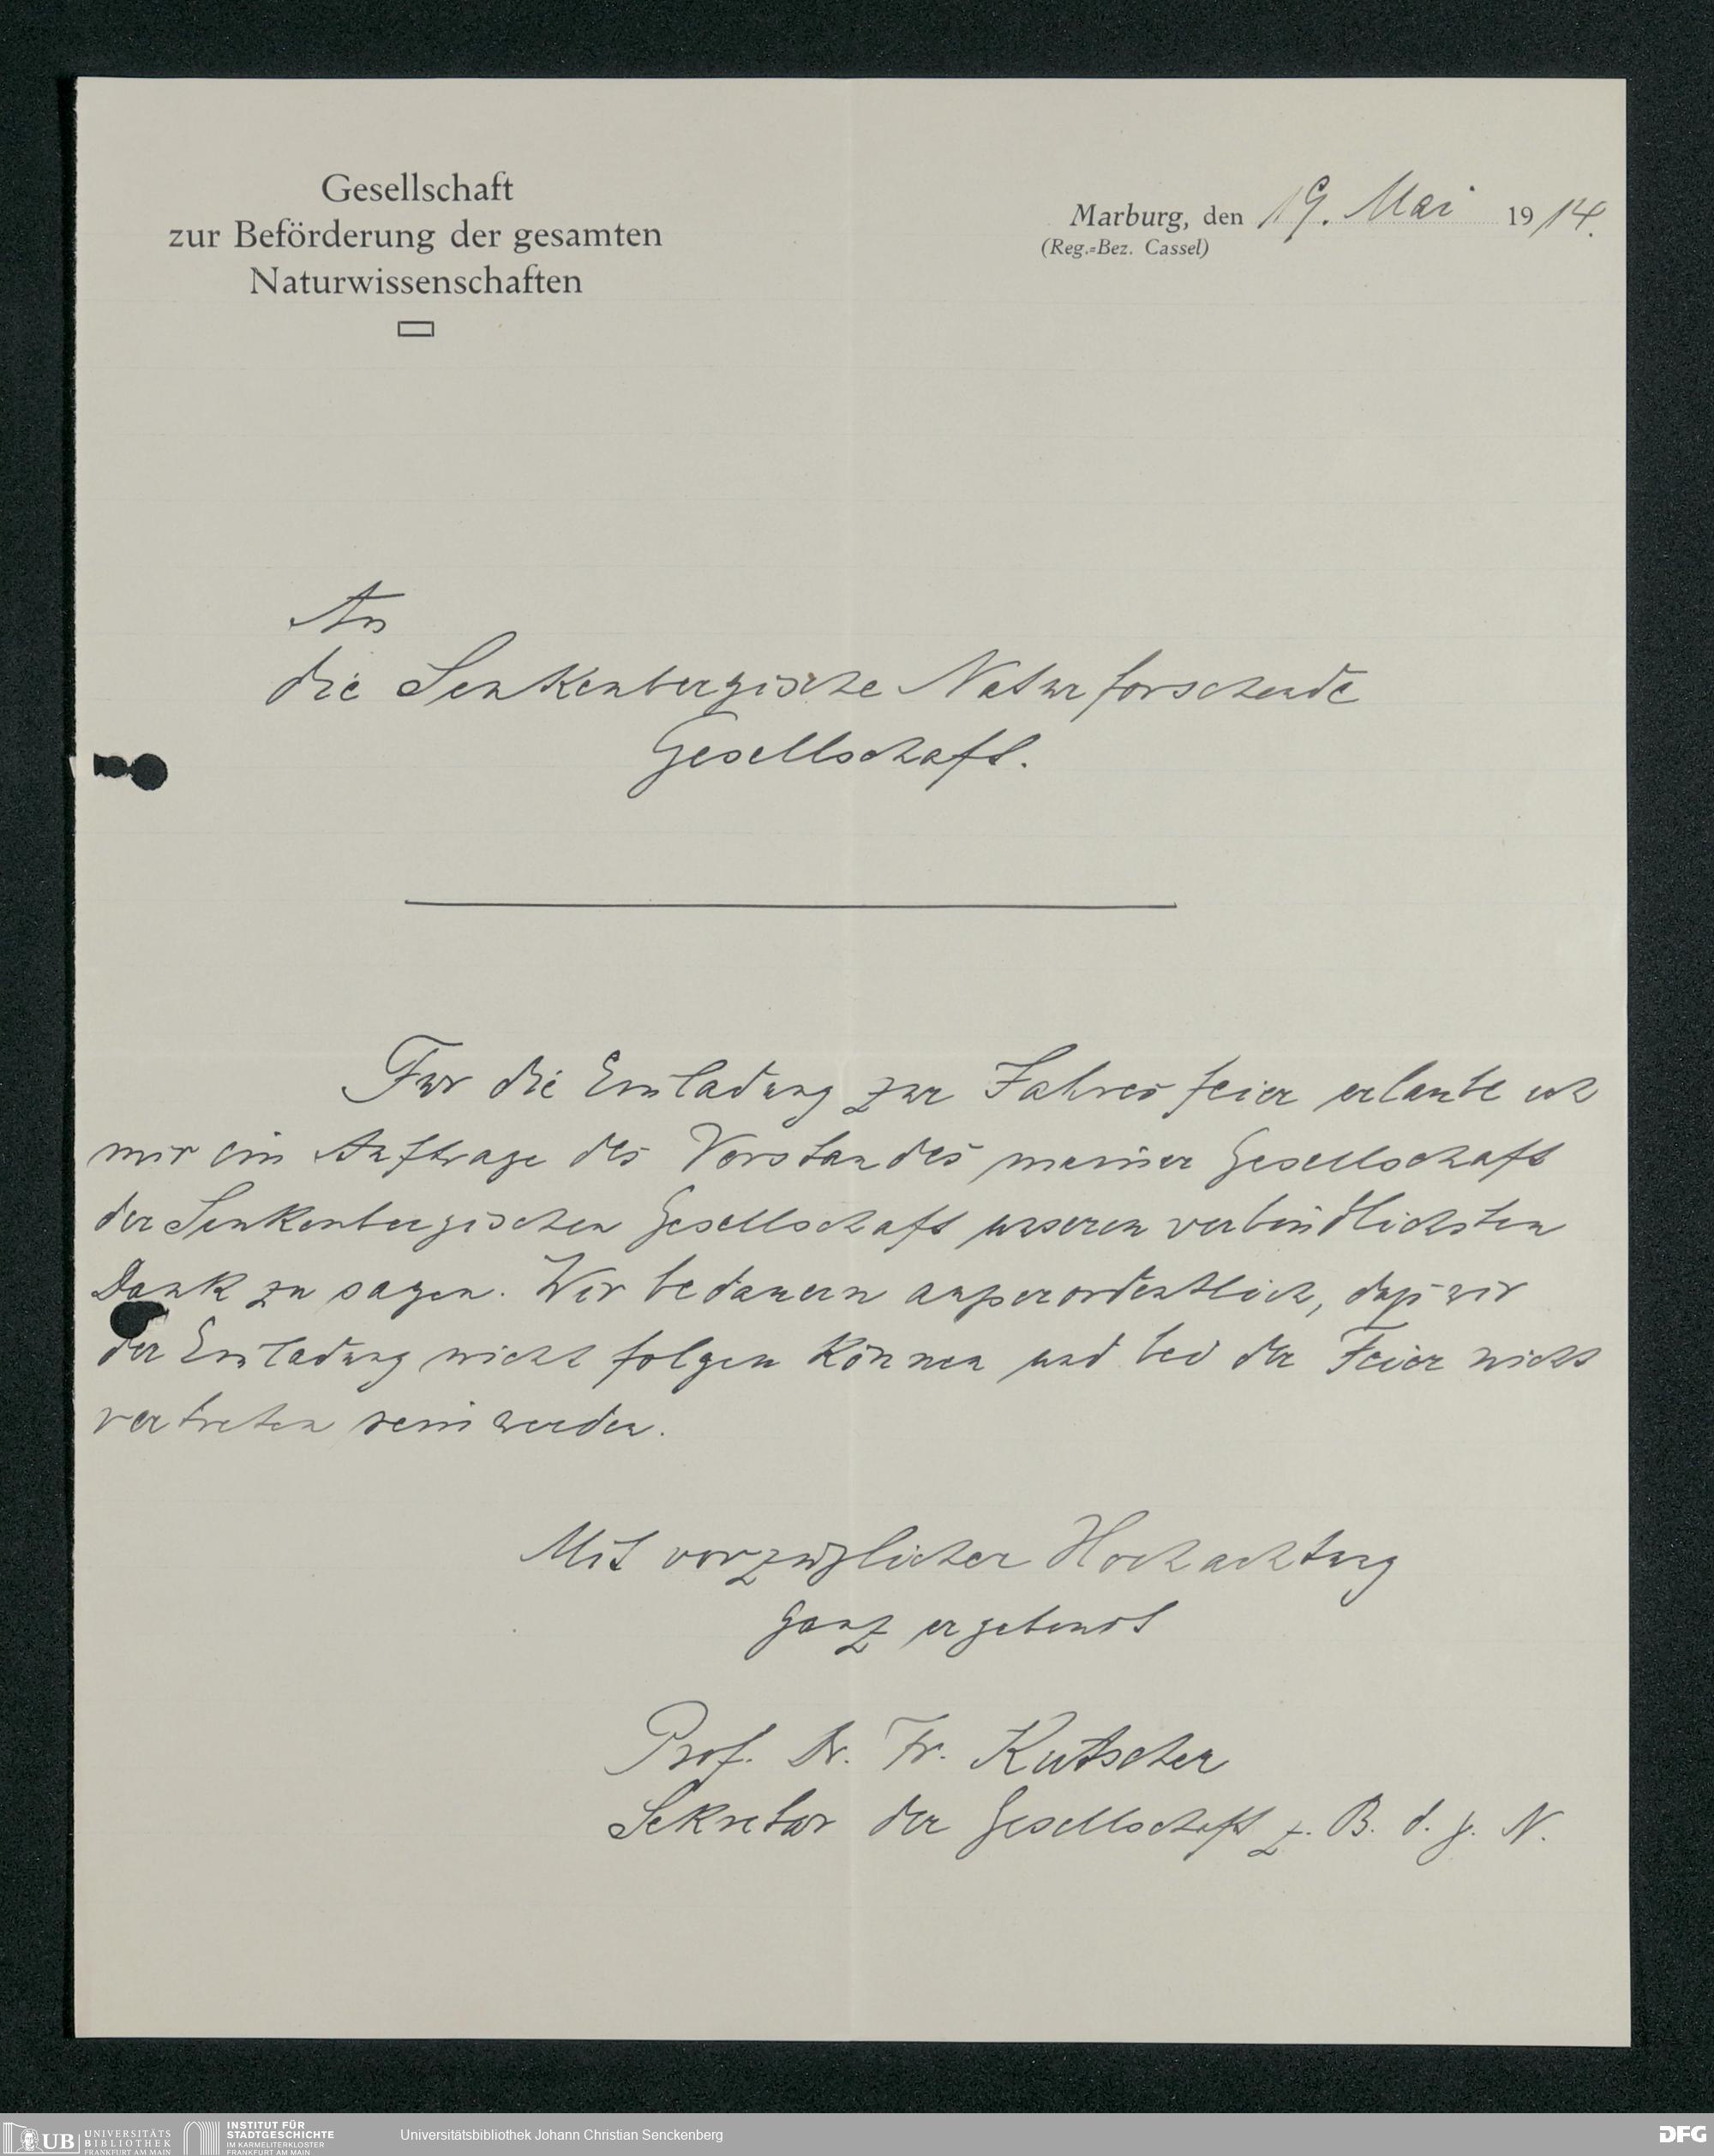 Gesellschaft
zur Beförderung der gesamten
Naturwissenschaften
Marburg, den 19. Mai 1914.
(Reg.=Bez. Cassel)
An
die Senkenbergische Naturforschende
Gesellschaft.
Für die Einladung zur Jahresfeier erlaube ich
mir im Auftrage des Vorstandes meiner Gesellschaft
der Senkenbergischen Gesellschaft unseren verbindlichsten
Dank zu sagen. Wir bedauern außerordentlich, daß wir
der Einladung nicht folgen können und bei der Feier nicht
vertreten sein werden.
Mit vorzüglicher Hochachtung
ganz ergebenst
Prof. Dr. Fr. Kutscher
Sekretär der Gesellschaft z. B. d. g. N.
UB UNIVERSITÄTS
BIBLIOTHEK
FRANKFURT AM MAIN
INSTITUT FÜR
STADTGESCHICHTE
IM KARMELITERKLOSTER
FRANKFURT AM MAIN
Universitätsbibliothek Johann Christian Senckenberg
DFG